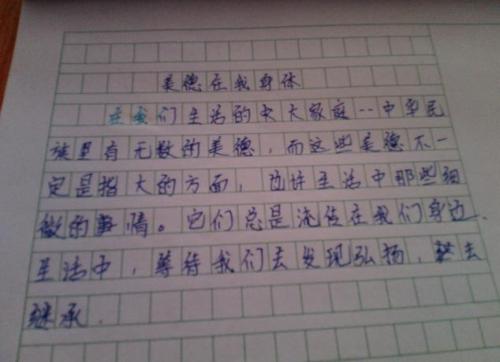 美德在我身体
在我们生活的大大家庭--中华民
族里有无数的美德，而这些美德不一
定是指大的方面，边许生活中那些细
微的事情。它们总是流传在我们身边.
生活中，等待我们去发现弘扬，去
继承.